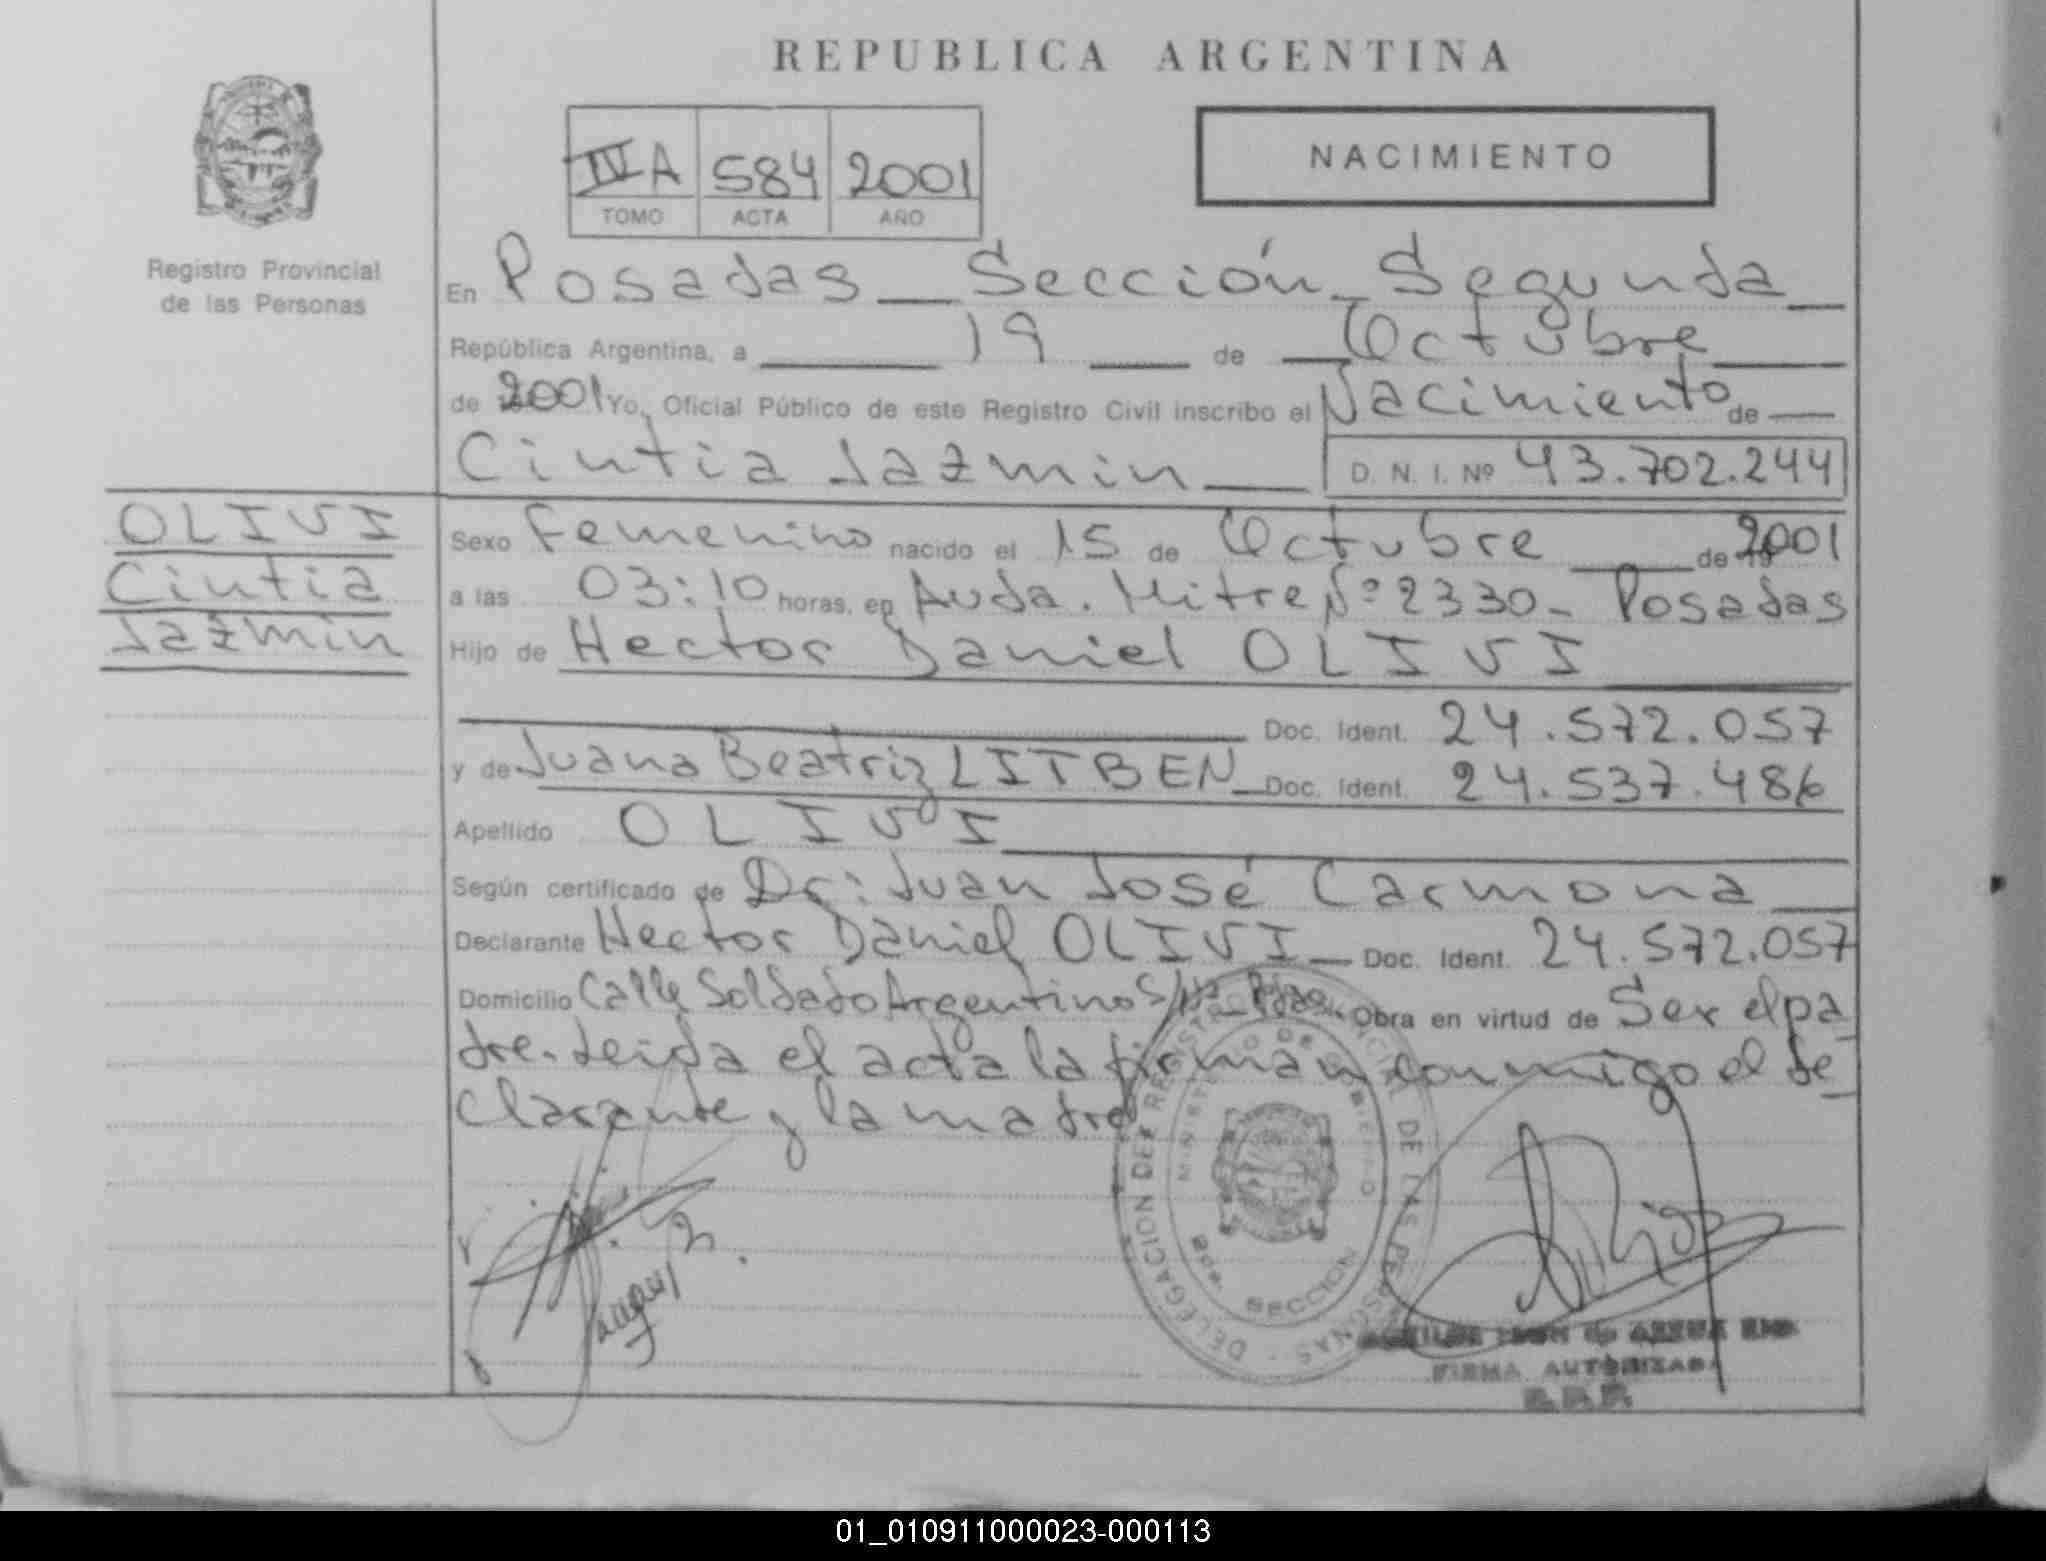 REPUBLICA ARGENTINA
IV A 584 2001
TOMO ACTA AÑO
NACIMIENTO
Registro Provincial
de las Personas
En Posadas Sección Segunda
República Argentina, a 19 de Octubre
de 2001 Yo, Oficial Público de este Registro Civil inscribo el Nacimiento de
Cintia Jazmin D. N. I. Nº 43.702.244
OLIVI
Cintia
Jazmin
Sexo Femenino nacido el 15 de Octubre de 2001
a las 03:10 horas, en Avda. Mitre Nº 2330 - Posadas
Hijo de Hector Daniel OLIVI
Doc. Ident. 24.572.057
y de Juana Beatriz LITBEN Doc. Ident. 24.537.486
Apellido OLIVI
Según certificado de Dr: Juan José Carmona
Declarante Hector Daniel OLIVI Doc. Ident. 24.572.057
Domicilio Calle Soldado Argentino S/Nº Obra en virtud de Ser el pa
dre. Leida el acta la firman conmigo el de
clarante y la madre
DELEGACION DEL REGISTRO PROVINCIAL DE LAS PERSONAS
MINISTERIO DE GOBIERNO
2da. SECCION
FIRMA AUTORIZADA
01_010911000023-000113